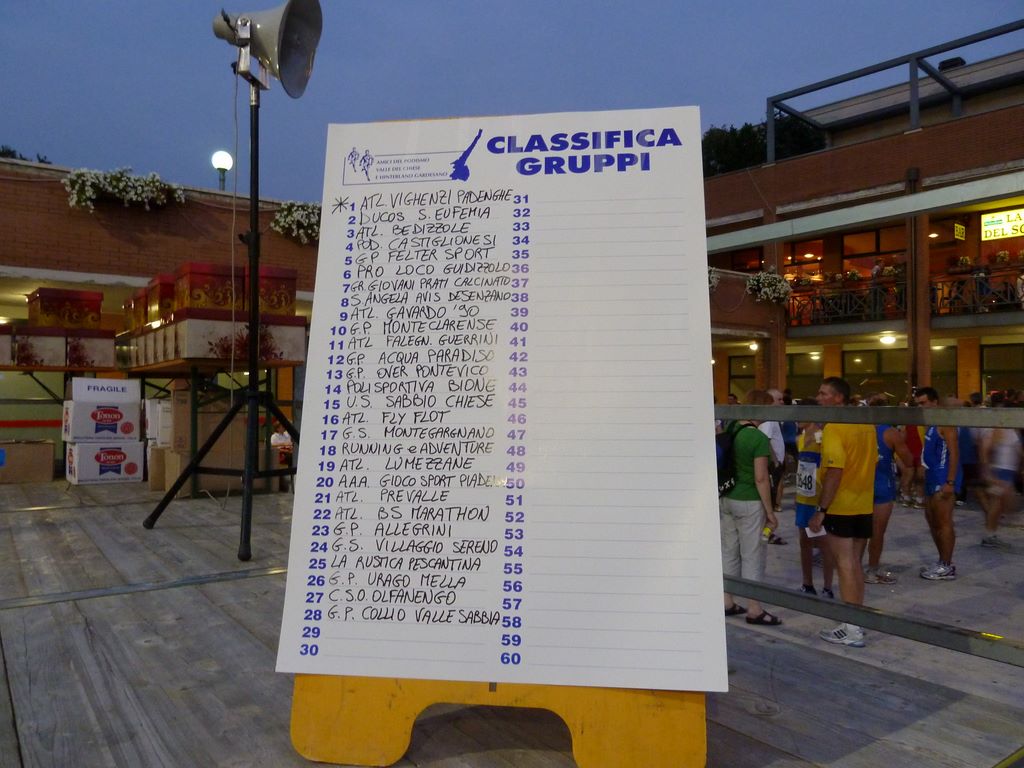 CLASSIFICA
GRUPPI
AMICI DEL PODISMO
VALLE DEL CHIESE
E HINTERLAND GARDESANO
*1 ATL VIGHENZI PADENGHE 31
2 DUCOS S. EUFEMIA 32
3 ATL. BEDIZZOLE 33
4 POD. CASTIGLIONESI 34
5 G.P FELTER SPORT 35
6 PRO LOCO GUIDIZZOLO 36
7 GR. GIOVANI PRATI CALCINATO 37
8 S. ANGELA AVIS DESENZANO 38
9 ATL. GAVARDO '90 39
10 G.P. MONTECLARENSE 40
11 ATL FALEGN. GUERRINI 41
12 G.P. ACQUA PARADISO 42
13 G.P. OVER PONTEVICO 43
14 POLISPORTIVA BIONE 44
15 U.S. SABBIO CHIESE 45
16 ATL. FLY FLOT 46
17 G.S. MONTEGARGNANO 47
18 RUNNING e ADVENTURE 48
19 ATL. LUMEZZANE 49
20 A.A.A. GIOCO SPORT PIADENA 50
21 ATL. PREVALLE 51
22 ATL. BS MARATHON 52
23 G.P. ALLEGRINI 53
24 G.S. VILLAGGIO SERENO 54
25 LA RUSTICA PESCANTINA 55
26 G.P. URAGO MELLA 56
27 C.S.O. OLFANENGO 57
28 G.P. COLLIO VALLE SABBIA 58
29 59
30 60
FRAGILE
Tonon
Tonon
LA
DEL SO
BAR